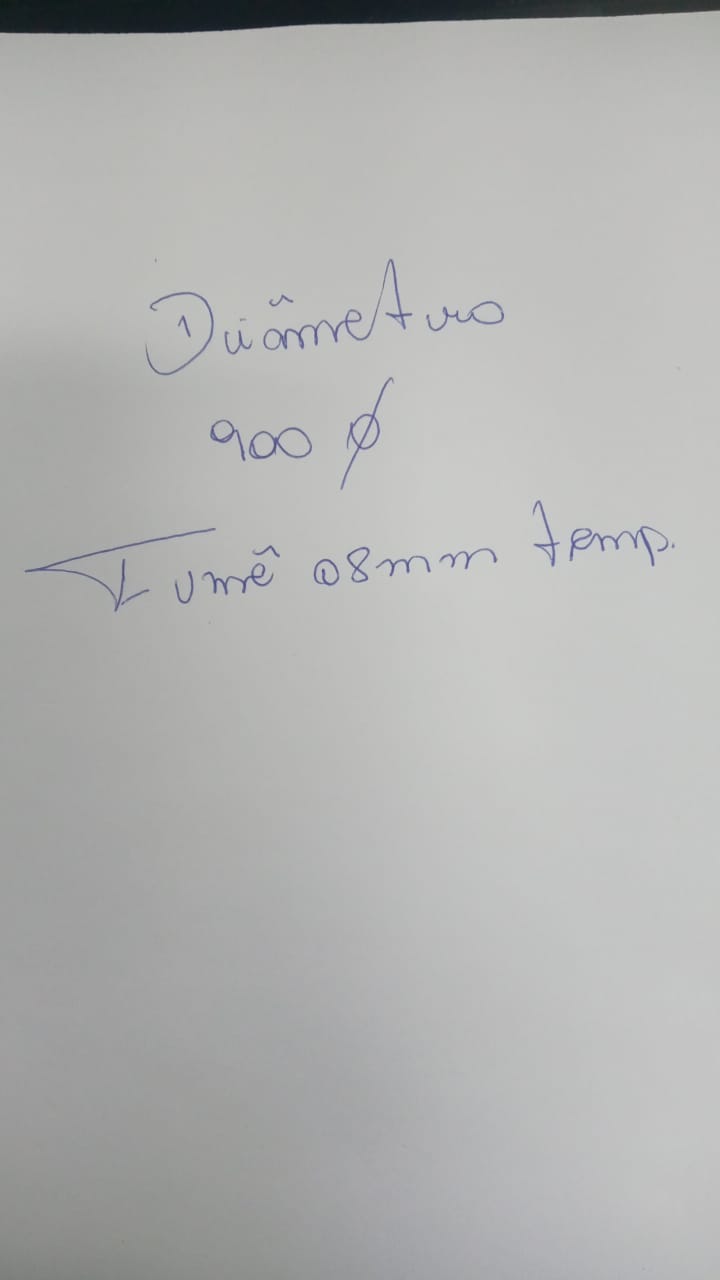 Diâmetro
900 Ø
Fumê 08mm temp.